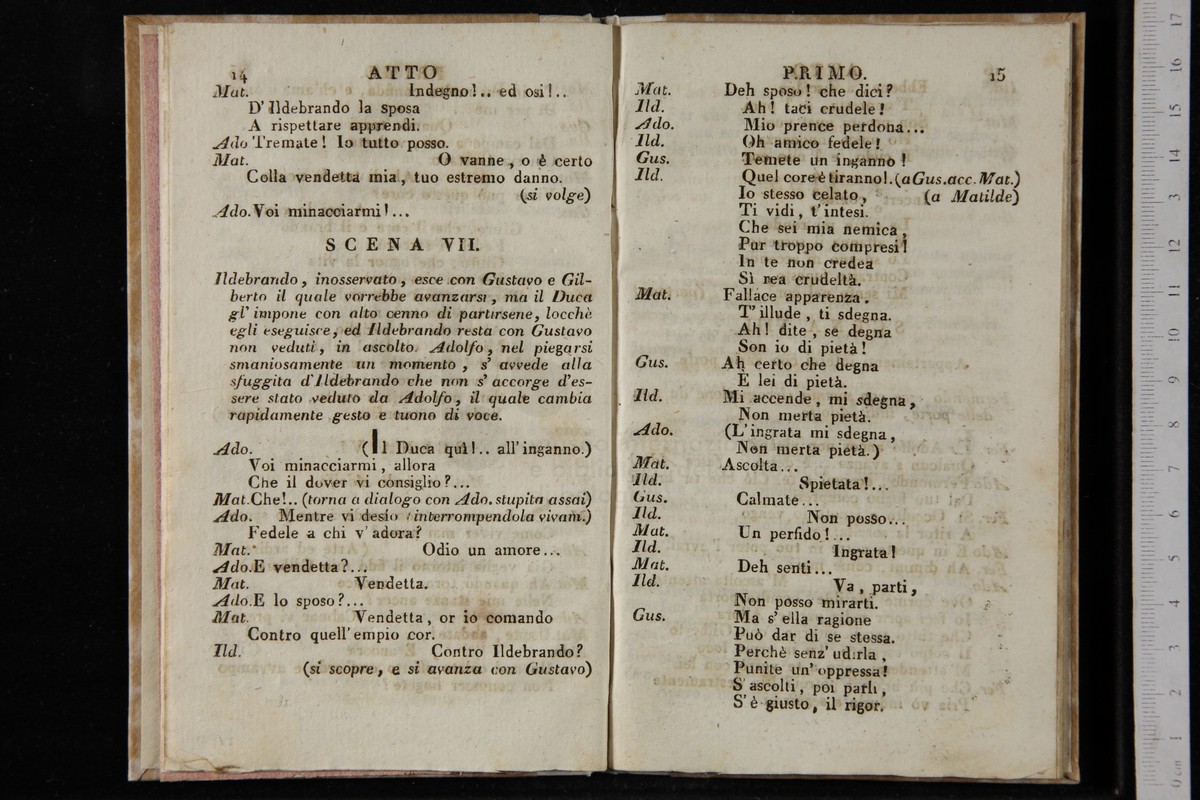 14 ATTO
Mat. Indegno!.. ed osi!..
D' Ildebrando la sposa
A rispettare apprendi.
Ado Tremate! Io tutto posso.
Mat. O vanne, o è certo
Colla vendetta mia, tuo estremo danno.
(si volge)
Ado. Voi minacciarmi!...
SCENA VII.
Ildebrando, inosservato, esce con Gustavo e Gil-
berto il quale vorrebbe avanzarsi, ma il Duca
gl' impone con alto cenno di partirsene, locchè
egli eseguisce, ed Ildebrando resta con Gustavo
non veduti, in ascolto. Adolfo, nel piegarsi
smaniosamente un momento, s' avvede alla
sfuggita d'Ildebrando che non s' accorge d'es-
sere stato veduto da Adolfo, il quale cambia
rapidamente gesto e tuono di voce.
Ado. (Il Duca quì!.. all' inganno.)
Voi minacciarmi, allora
Che il dover vi consiglio?...
Mat. Che!.. (torna a dialogo con Ado. stupita assai)
Ado. Mentre vi desio (interrompendola vivam.)
Fedele a chi v' adora?
Mat. Odio un amore...
Ado. E vendetta?...
Mat. Vendetta.
Ado. E lo sposo?...
Mat. Vendetta, or io comando
Contro quell' empio cor.
Ild. Contro Ildebrando?
(si scopre, e si avanza con Gustavo)
PRIMO. 15
Mat. Deh sposo! che dici?
Ild. Ah! taci crudele!
Ado. Mio prence perdona...
Ild. Oh amico fedele!
Gus. Temete un inganno!
Ild. Quel core è tiranno!. (a Gus. acc. Mat.)
Io stesso celato, (a Matilde)
Ti vidi, t' intesi.
Che sei mia nemica,
Pur troppo compresi!
In te non credea
Sì rea crudeltà.
Mat. Fallace apparenza.
T' illude, ti sdegna.
Ah! dite, se degna
Son io di pietà!
Gus. Ah certo che degna
E lei di pietà.
Ild. Mi accende, mi sdegna,
Non merta pietà.
Ado. (L' ingrata mi sdegna,
Non merta pietà.)
Mat. Ascolta...
Ild. Spietata!...
Gus. Calmate...
Ild. Non posso...
Mat. Un perfido!...
Ild. Ingrata!
Mat. Deh senti...
Ild. Va, parti,
Non posso mirarti.
Gus. Ma s' ella ragione
Può dar di se stessa.
Perchè senz' udirla,
Punite un' oppressa!
S' ascolti, poi parli,
S' è giusto, il rigor.
0 cm 1 2 3 4 5 6 7 8 9 10 11 12 13 14 15 16 17